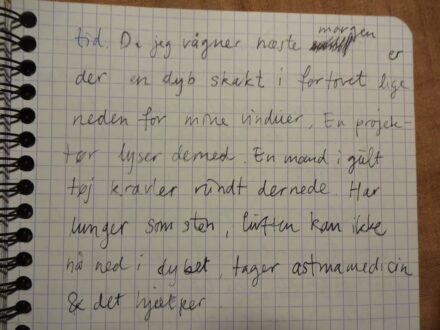 tid. Da jeg vågner næste morgen er
der en dyb skakt i fortovet lige
neden for mine vinduer. En projek-
tør lyser derned. En mand i gult
tøj kravler rundt dernede. Har
lunger som sten, luften kan ikke
nå ned i dybet, tager astmamedicin
& det hjælper.